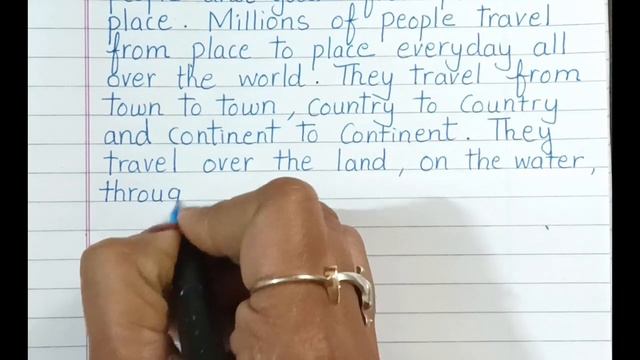 place. Millions of people travel
from place to place everyday all
over the world. They travel from
town to town, country to country
and continent to continent. They
travel over the land, on the water,
throug